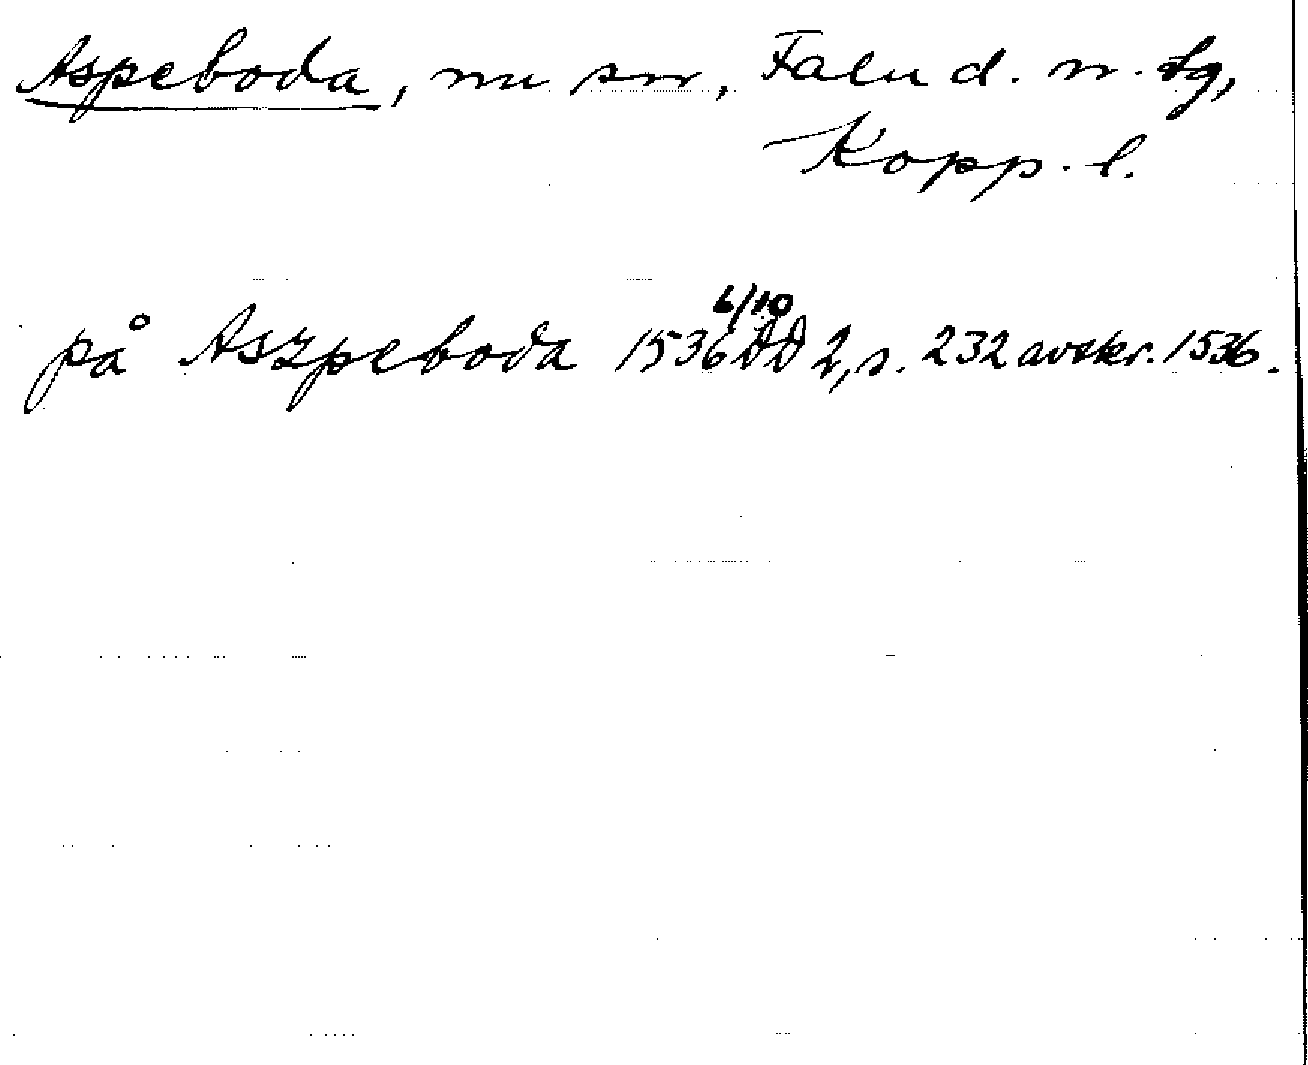 Aspeboda, nu sn, Falu d. n. tg,
Kopp. l.
på Aszpeboda 1536 6/10 DD 2, s. 232 avskr. 1536.